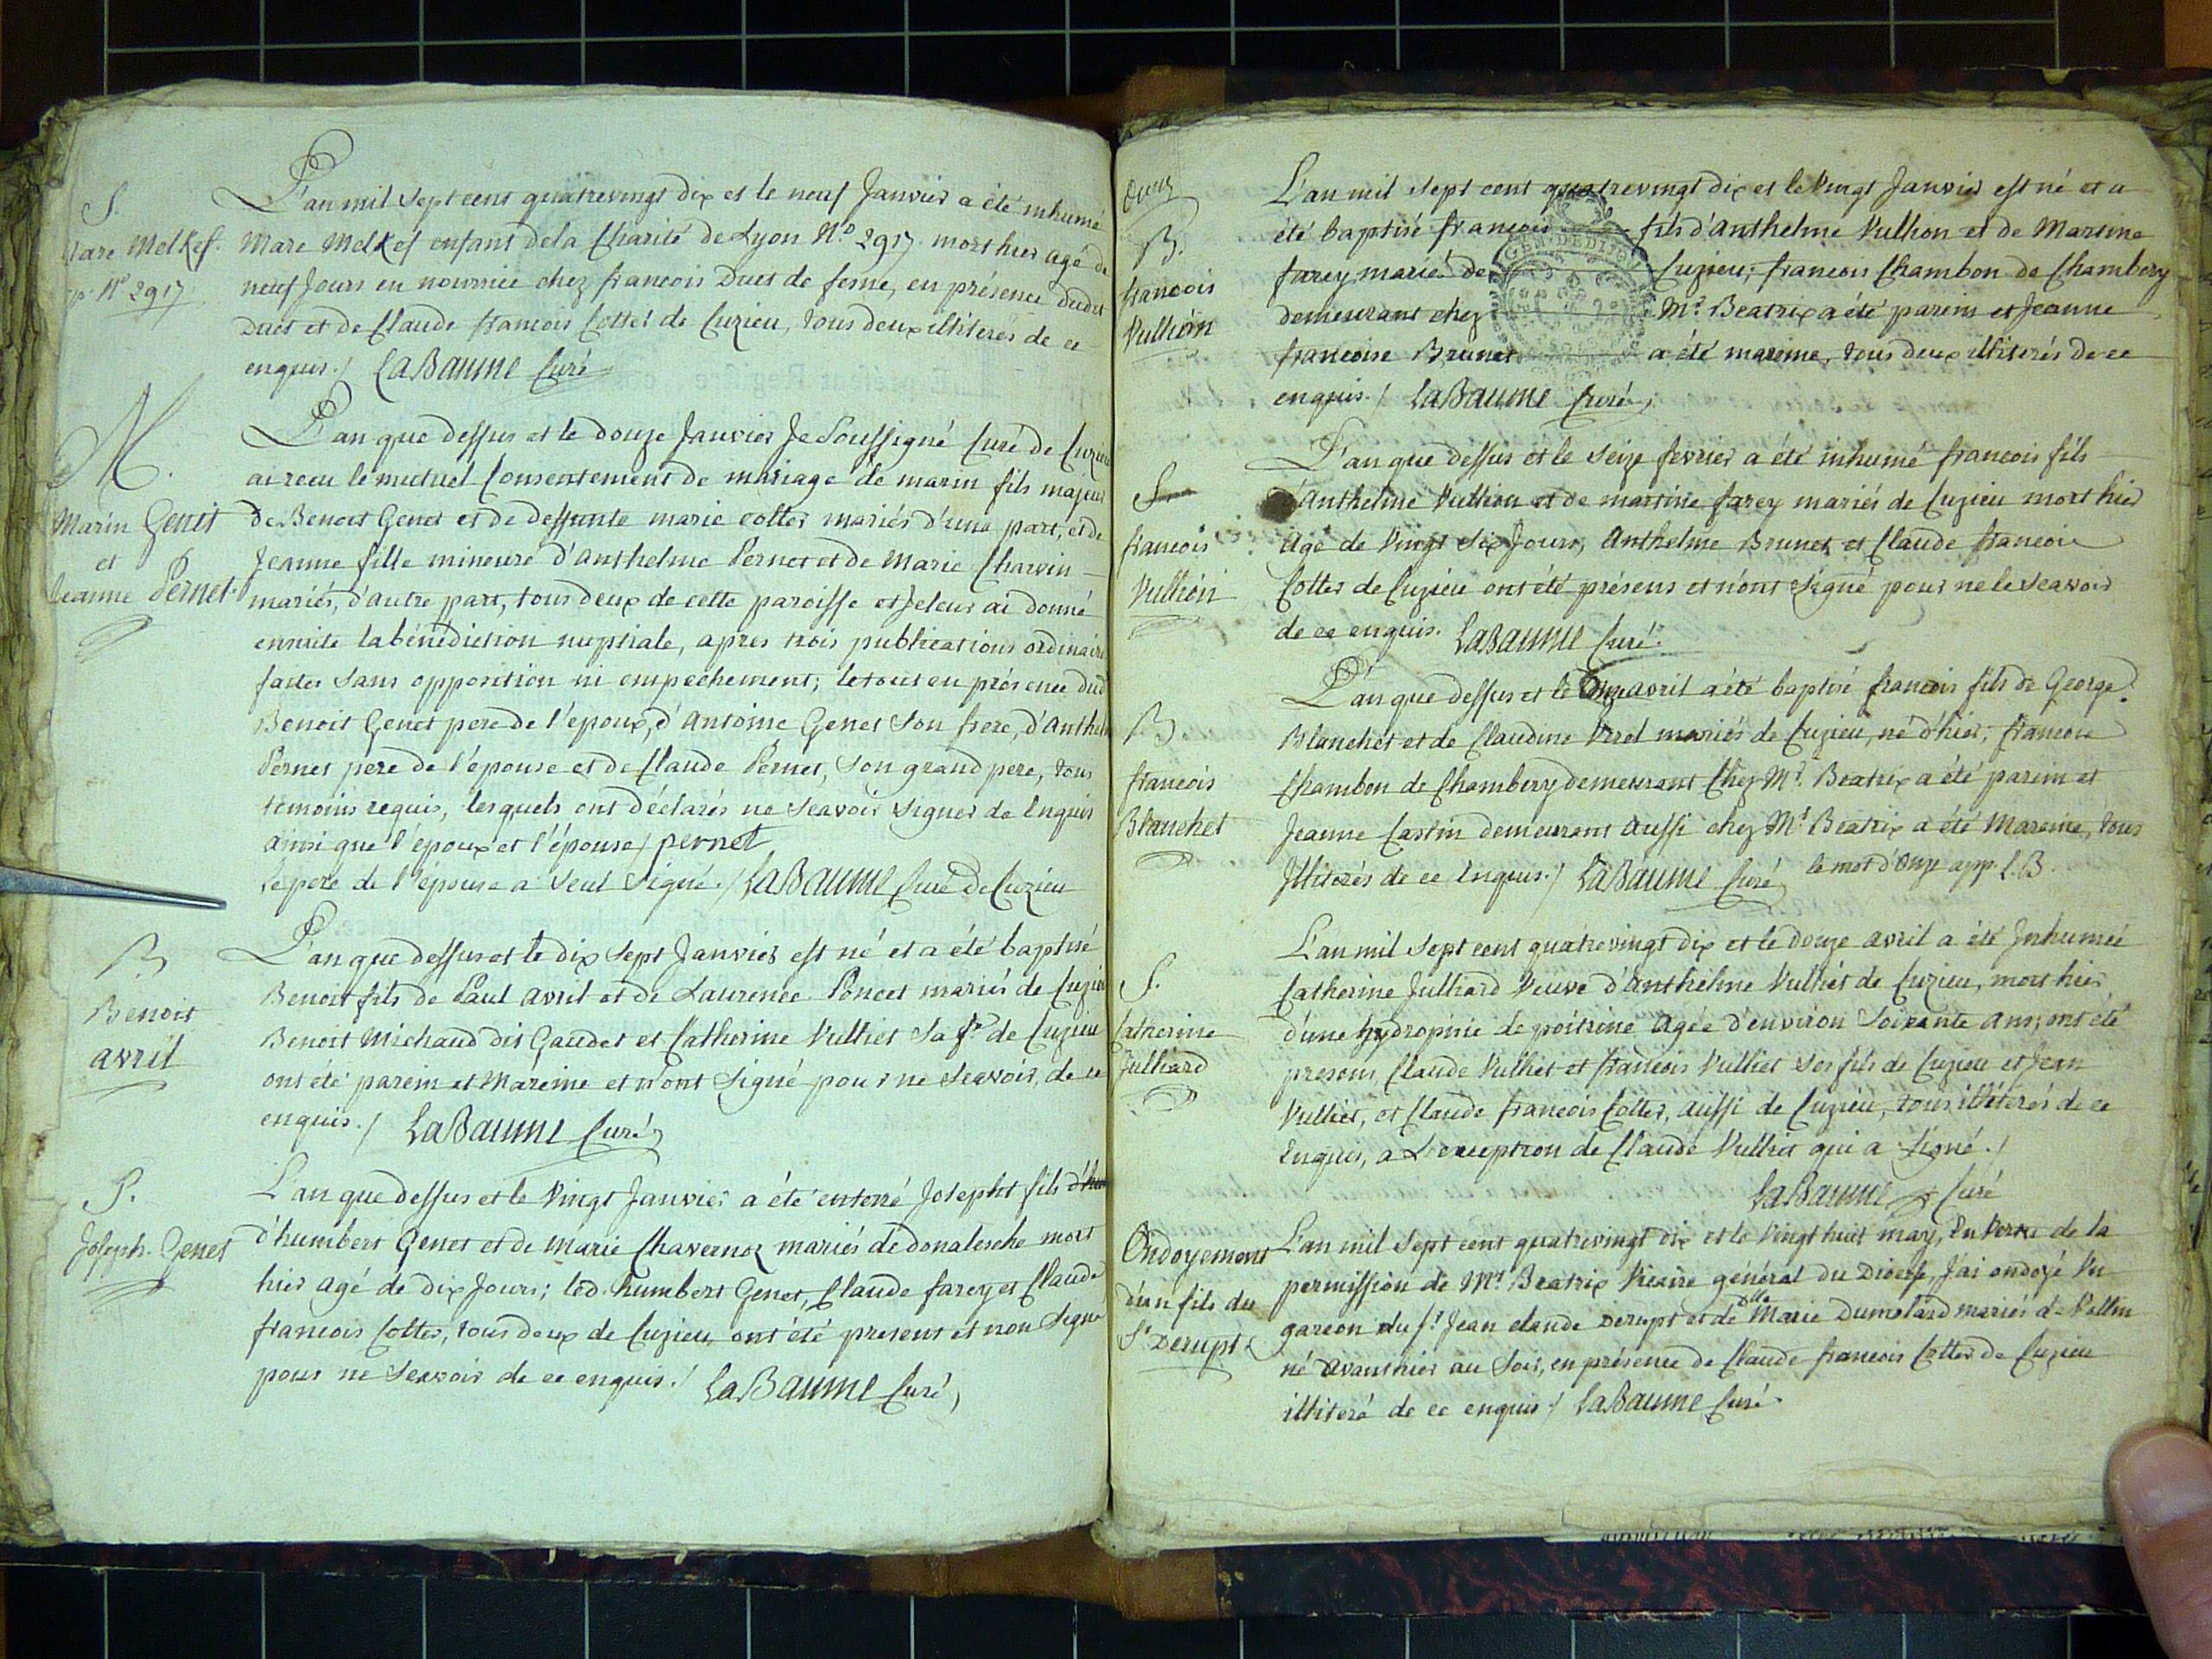 S.
Marc Melkef.
N.o 2917
L'an mil Sept cent quatrevingt dix et le neuf Janvier a été inhumé
Marc Melkef enfant de la Charité de Lyon N.o 2917. mort hier agé de
neuf Jours en nourrice chez francois Duet de fesne, en présence dudit
Duet et de Claude francois Cottet de Cuzieu, tous deux illiterés de ce
enquis./. LaBaume Curé
M.
Marin Genet
et
Jeanne Pernet.
L'an que dessus et le douze Janvier Je Soussigné Curé de Cuzieu
ai recu le mutuel Consentement de mariage de marin fils majeur
de Benoit Genet et de deffunte marie cottet mariés d'une part, et de
Jeanne fille mineure d'anthelme Pernet et de Marie Charvin
mariés, d'autre part, tous deux de cette paroisse et Je leur ai donné
ensuite la bénédiction nuptiale, apres trois publications ordinaires
faites Sans opposition ni empechement; le tout en présence dud
Benoit Genet pere de l'époux, d'Antoine Genet Son frere, d'Anthelme
Pernet pere de l'épouse et de Claude Pernet, Son grand pere, tous
temoins requis, lesquels ont déclarés ne Scavoir Signer de Enquis
ainsi que l'époux et l'épouse / pernet
Le pere de l'épouse a Seul Signé./. LaBaume Curé de Cuzieu
B
Benoit
avril
L'an que dessus et le dix Sept Janvier est né et a été baptisé
Benoit fils de Paul avril et de Laurence Poncet mariés de Cuzieu
Benoit Michaud dit Gaudet et Catherine Vulliet Sa fe. de Cuzieu
ont été parein et Mareine et n'ont Signé pour ne Scavoir, de ce
enquis./ LaBaume Curé
S.
Joseph. Genet
L'an que dessus et le Vingt Janvier a été enterré Josepht fils
d'humbert Genet et de Marie Chavernoz mariés de donalesche mort
hier agé de dix Jours; led. humbert Genet, Claude farcy et Claude
francois Cottet, tous deux de Cuzieu ont été present et non Signé
pour ne Scavoir de ce enquis./ LaBaume Curé
B.
francois
Vullion
L'an mil Sept cent quatrevingt dix et le Vingt Janvier est né et a
été baptisé francois fils d'anthelme Vullion et de Marsine
farcy marié de Cuzieu; francois Chambon de Chambery
demeurant chez Mr. Beatrix a été parein et Jeanne
francoise Brunet a été mareine, tous deux illiterés de ce
enquis./ LaBaume Curé
S
francois
Vullion
L'an que dessus et le Seize fevrier a été inhumé francois fils
d'Anthelme Vullion et de marsine farcy mariés de Cuzieu mort hier
Agé de Vingt Six Jours, Anthelme Brunet et Claude francois
Cottet de Cuzieu ont été présens et n'ont Signé pour ne le Scavoir
de ce enquis. LaBaume Curé.
B
francois
Blanchet
L'an que dessus et le Onze avril a été baptisé francois fils de George
Blanchet et de Claudine Virel mariés de Cuzieu, né d'hier; francois
Chambon de Chambery demeurant Chez Mr. Beatrix a été parein et
Jeanne Castin demeurant aussi chez Mr Beatrix a été Mareine, tous
Illiterés de ce Enquis./ LaBaume Curé le mot d'Onze app. L.B.
S.
Catherine
Julliard
L'an mil Sept cent quatrevingt dix et le douze avril a été Inhumée
Catherine Julliard Veuve d'anthelme Vulliet de Cuzieu, mort hier
d'une hydropisie de poitrine Agée d'environ Soixante ans; ont été
presens Claude Vulliet et francois Vulliet Ses fils de Cuzieu et Jean
Vulliet, et Claude francois Cottet, aussi de Cuzieu, tous illiterés de ce
Enquis, a L'exception de Claude Vulliet qui a Signé./
LaBaume Curé
Ondoyement
d'un fils du
Sr Derupt
L'an mil Sept cent quatrevingt dix et le Vingt huit may, En Vertu de la
permission de Mr. Beatrix Vicaire général du Diocese, J'ai ondoyé Un
garcon du Sr. Jean claude Derupt et de Dlle Marie Dumolard mariés de
né avanthier au Soir, en présence de Claude francois Cottet de Cuzieu
illiteré de ce enquis./ LaBaume Curé